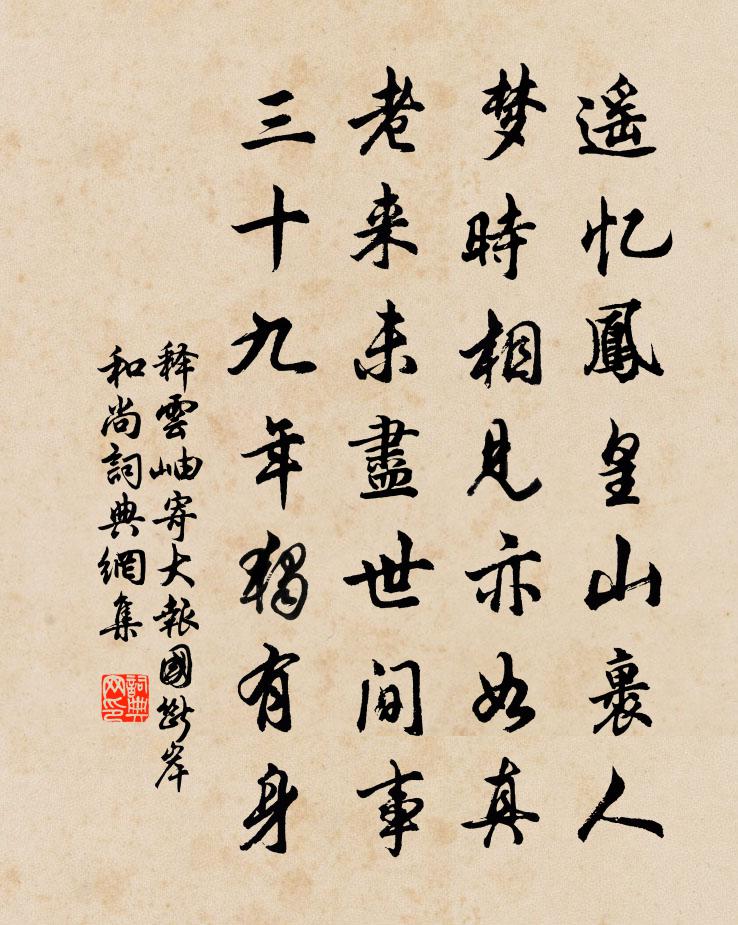 遥忆鳳皇山裏人
梦時相見亦如真
老来未盡世間事
三十九年獨有身
释雲岫寄大報國断岸
和尚詞典網集
詞典
网印